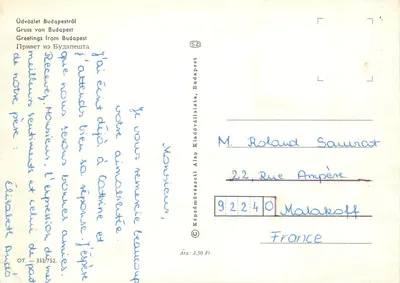 Üdvözlet Budapestről
Gruss von Budapest
Greetings from Budapest
Привет из Будапешта
Monsieur,
Je vous remercie beaucoup
votre aimabilitée.
J'ai écrit déjà à Cathrine et
j'attends bien sa réponse. J'éspère
que nous serons bonnes amies.
Recevez, Monsieur, l'expression de mes
meilleurs sentiments et celui de part
de notre père:
Élisabeth Andó
© Képzőművészeti Alap Kiadóvállalata, Budapest
M. Roland Sausrat
22, Rue Ampère
92240 Malakoff
France
OT. — 353/752
Ára: 3,50 Ft